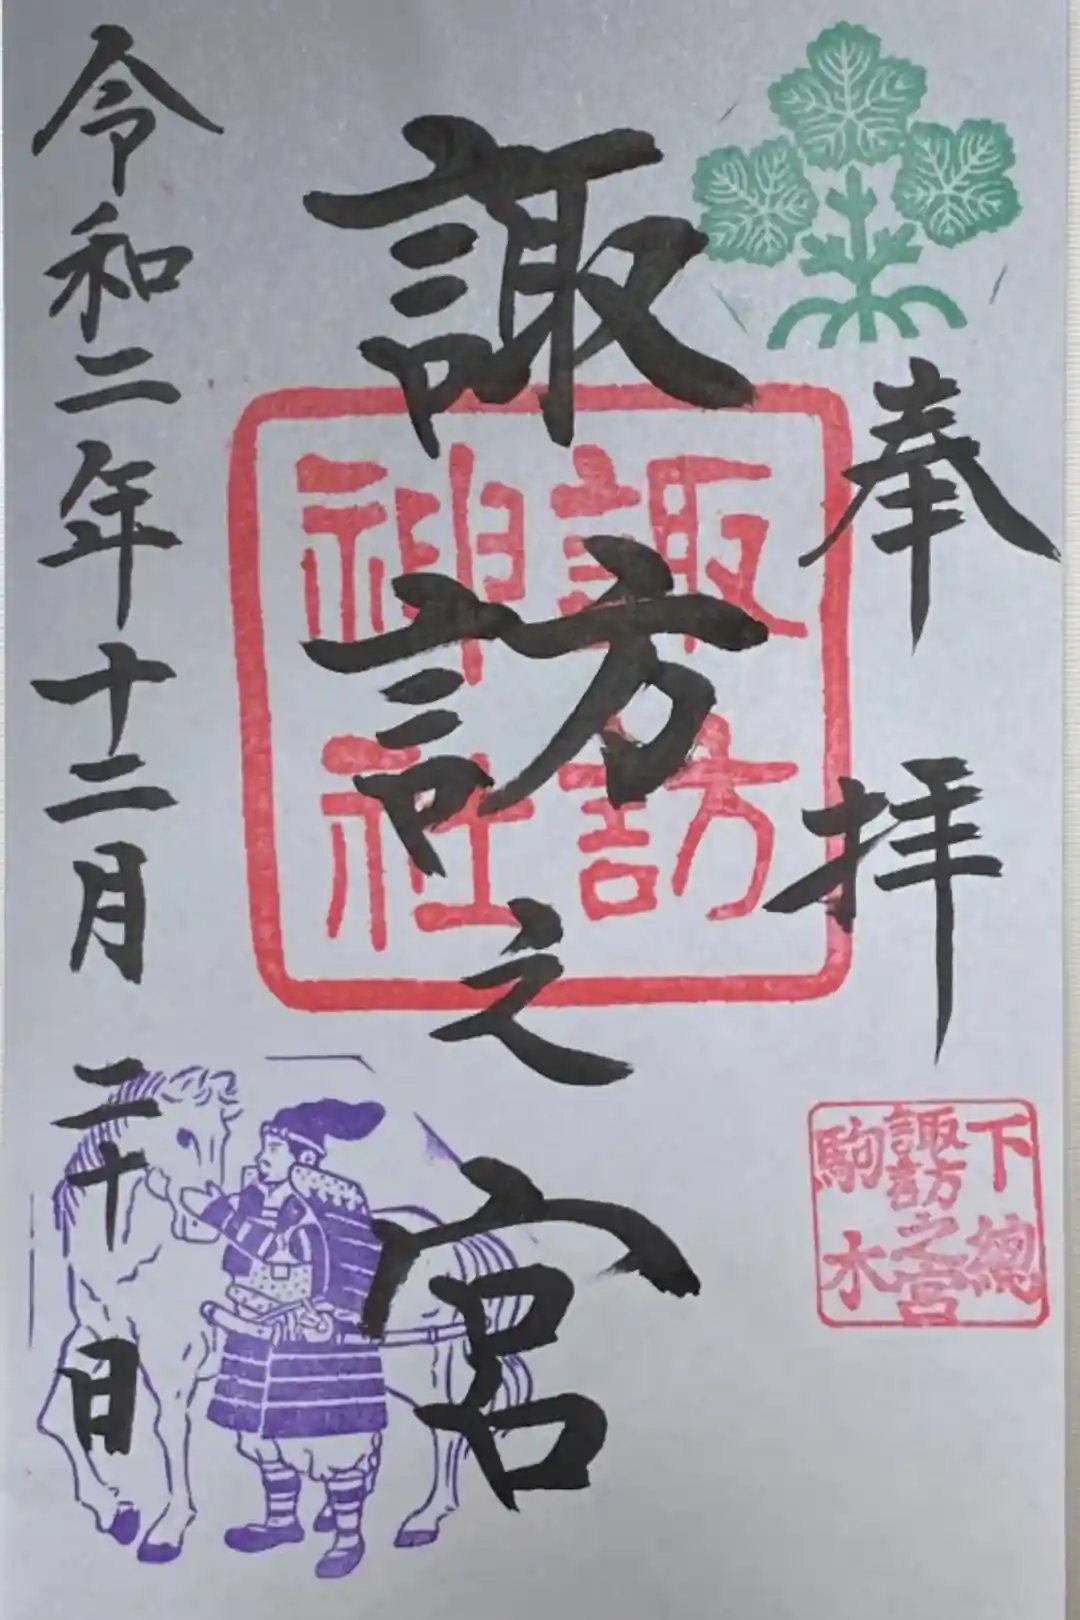 奉拝
諏訪之宮
令和二年十二月二十日
諏訪
神社
下總
諏訪之宮
駒木